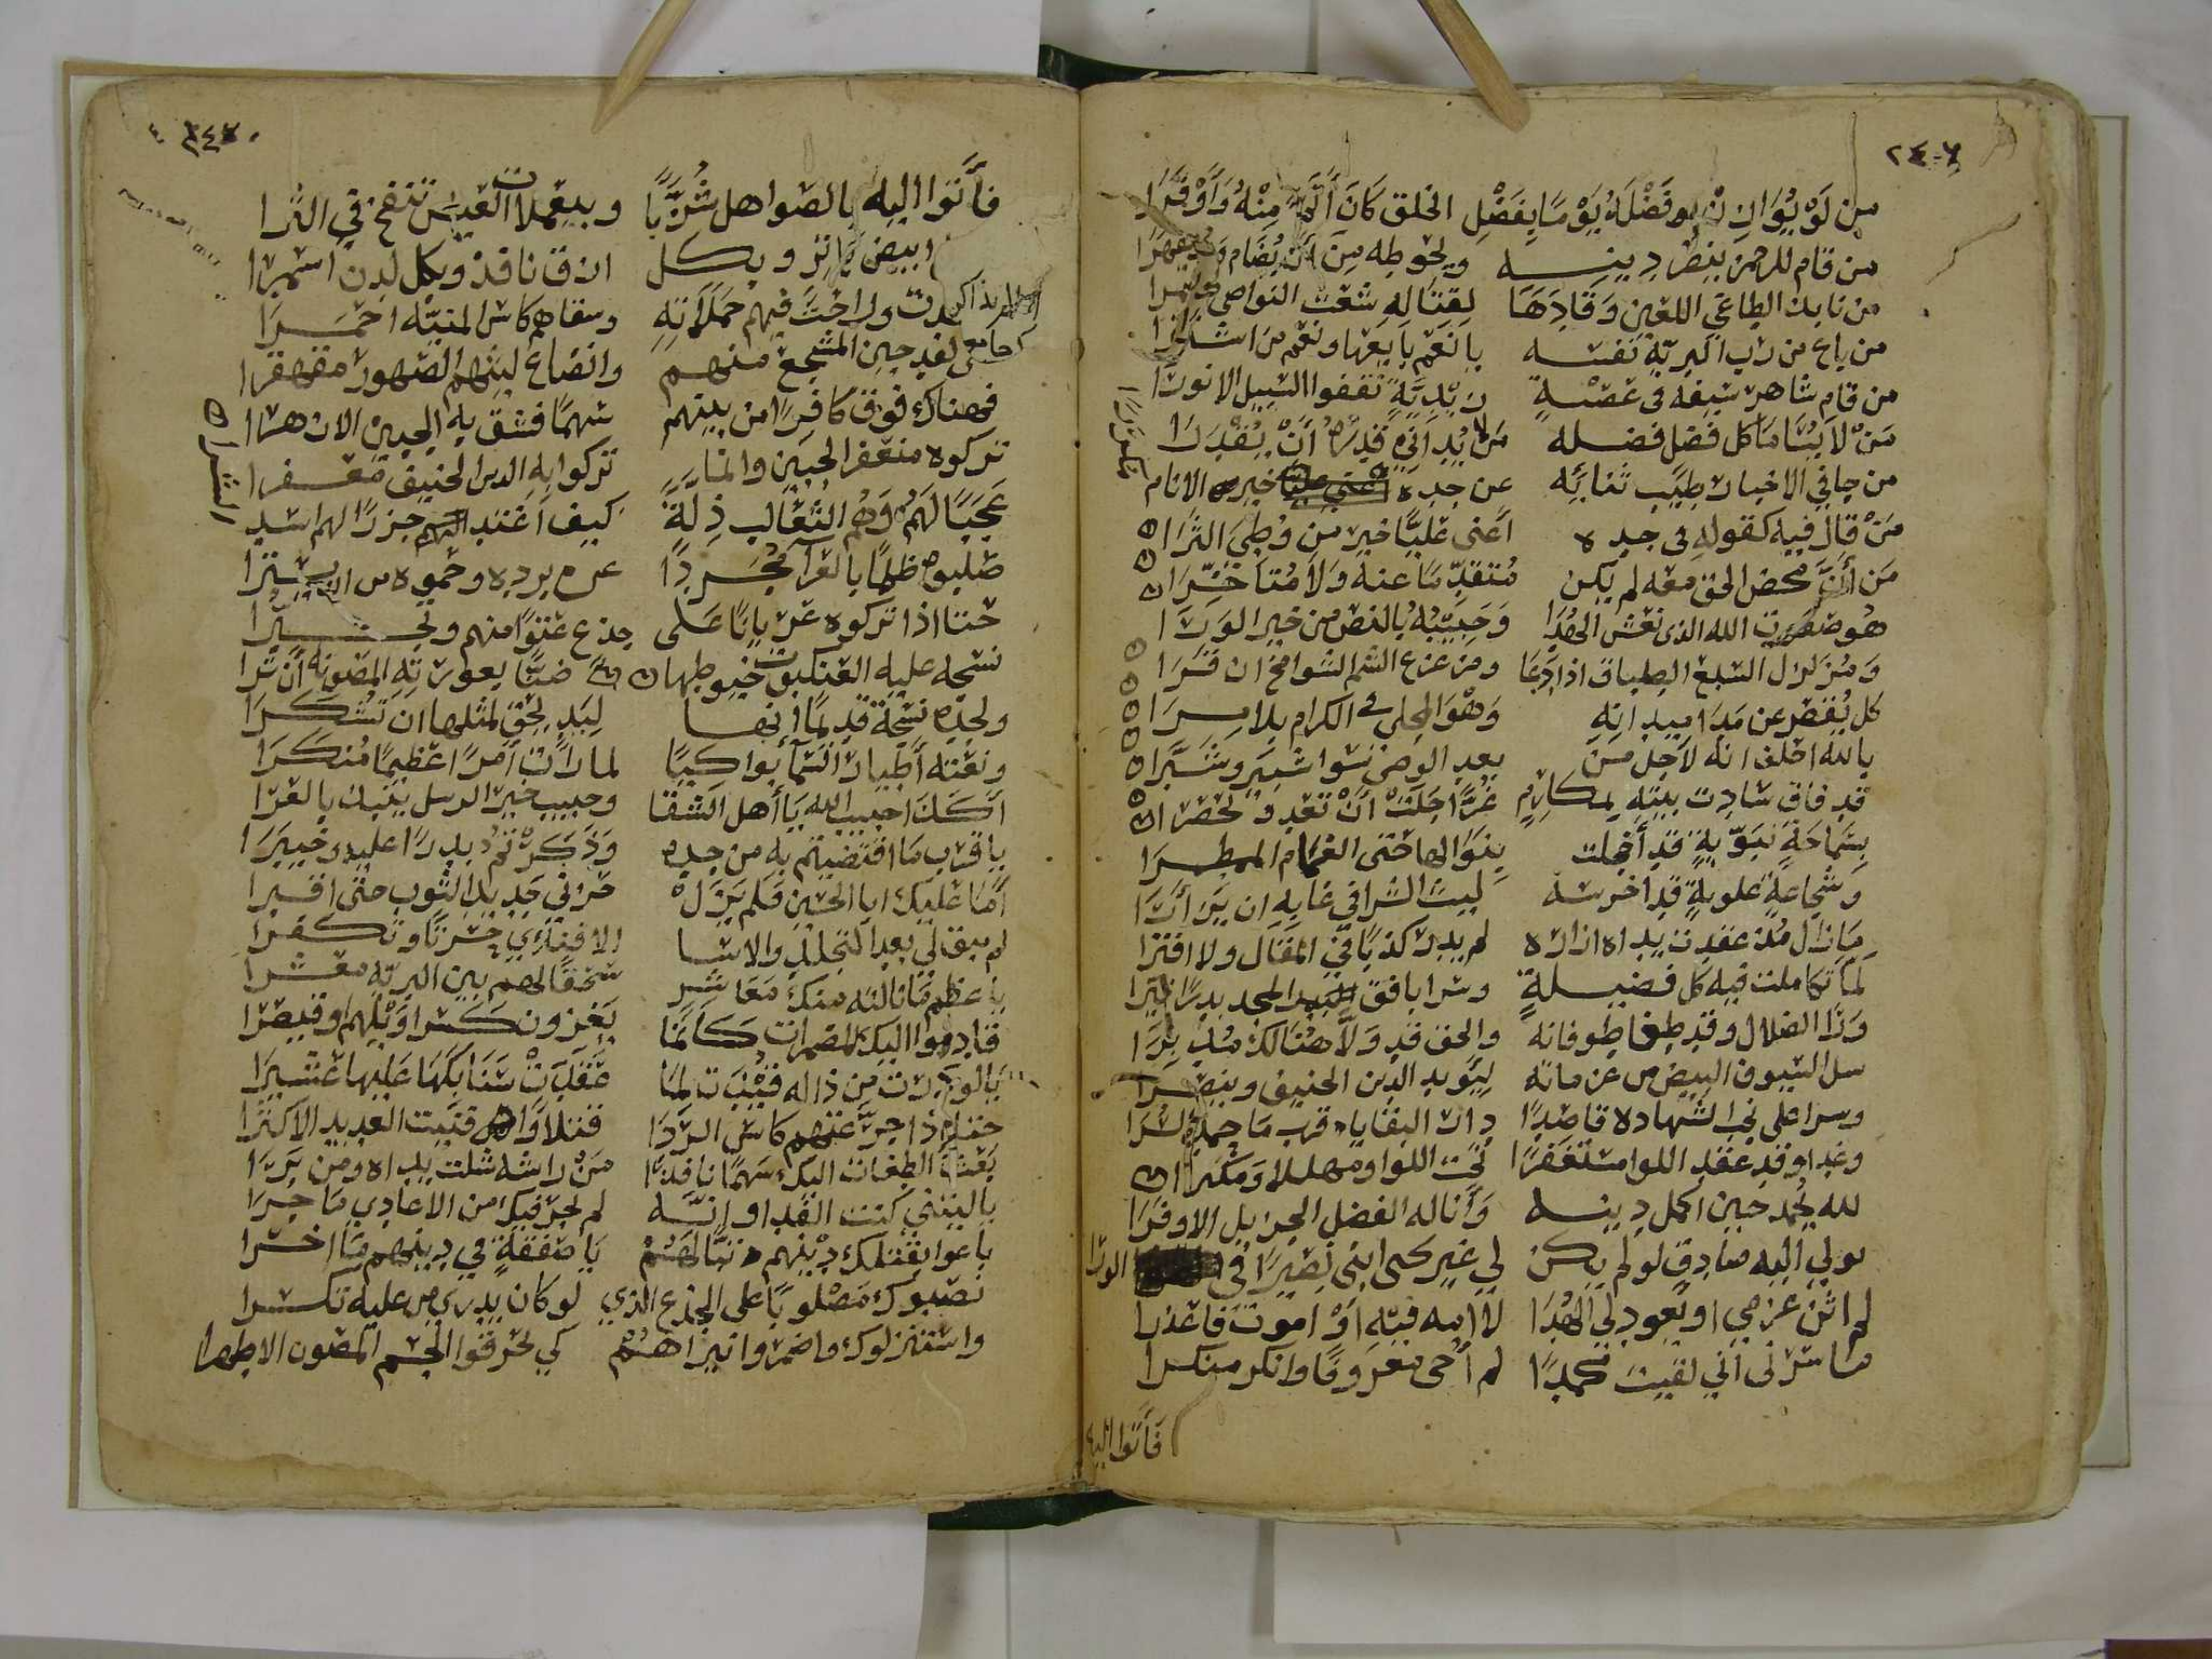 من لو يوازن فضله يوما بفضل الخلق كان أتم منه وأوفرا
من قام للرحمن ينصر دينه ويحوطه من أن يضام ويقهرا
من نابذ الطاغي اللعين وقادها لقتاله شعث النواصي ضمرا
من باع من رب البرية نفسه يا نعم بايعها ونعم من اشترى
من قام شاهر سيفه في عصبة زيدية تقفوا السبيل الانورا
من لا يسامى كل فضل فضله من لا يداني قدره أن يقدرا
من جاء في الاخبار طيب ثنائه عن جده خير الانام
من قال فيه كقوله في جده أعني عليا خير من وطئ الثرا
من أن محض الحق معه لم يكن متقدما عنه ولا متأخرا
هو صفوت الله الذي نعش الهدا وحبيبه بالنص من خير الورا
ومزلزل السبع الطباق اذا دعا ومزعزع الشم الشوامخ ان قرا
كل يقصر عن مدا ميدانه وهو المجلي في الكرام بلا مرا
بالله احلف انه لاجل من بعد الوصي سوا شبير وشبرا
قد فاق سادت بيته بمكارم غرا جلت أن تعد وتحصرا
بسماحة نبوية قد أخجلت بنوالها حتى الغمام الممطرا
وشجاعة علوية قد اخرست ليث الشرا في غابه ان يزأرا
ما زال مذ عقدت يداه ازاره لم يدر كذبا في المقال ولا افترا
لما تكاملت فيه كل فضيلة وسرا بافق المجد بدرا نيرا
ورا الضلال وقد طغا طوفانه والحق قد ولا هنالك مدبرا
سل السيوف البيض من عزماته ليؤيد الدين الحنيف وينصرا
وسرا على نجب الشهادة قاصدا دار البقا يا قرب ما حمد السرا
وغدا وقد عقد اللوا مستغفرا تحت اللوا ومهللا ومكبرا
لله يحمد حين اكمل دينه وأناله الفضل الجزيل الاوفرا
يولي اليه صادق لو لم يكن لي غير يحيى ابني نصيرا في الورا
لم اثن عزمي او يعود لي الهدا لا امه فيه أو اموت فاعذرا
ما سرني أني لقيت محمدا لم أحي معروفا وانكر منكرا
فأتوا اليه
فأتوا اليه بالصواهل شزبا وبيعملات العيس تنفح في الثرا
وبكل ابيض باتر وبكل ازرق نافذ وبكل لدن اسمرا
فيهم حملاته وسقاهم كاس المنية احمرا
لقد جبن المشجع منهم وانصاع ليثهم الهصور مقهقرا
فهناك فوق كافرا من بينهم سهما فشق به الجبين الازهرا
تركوه منعفر الجبين وانما تركوا به الدين الحنيف معفرا
عجبا لهم وهم الثعالب ذلة كيف اغتدا جزرا لهم اسد الشرا
صلبوه ظلما بالعرآ مجردا عن برده وحموه من ان يسترا
حتا اذا تركوه عريانا على جذع عتوا منهم وتجبرا
نسجت عليه العنكبوت خيوطها ضنا بعورته المصونة أن ترا
ولجده نسجت قديما انها ليد يحق لمثلها ان تشكرا
ونعته أطيار السمآ بواكيا لما رأت أمرا عظيما منكرا
أكذا حبيب الله يا أهل الشقا وحبيب خير الرسل ينبذ بالعرا
يا قرب ما اقتضيتم به من جده وذكرتم بدرا عليه وخيبرا
أما عليك ابا الحسين فلم يزل حزني جديد الثوب حتى اقبرا
لم يبق لي بعد التجلد والاسا الا فنآئي حسرتا وتحسرا
يا عظم ما نالته منك معاشر سحقا لهم بين البرية معشرا
قادوا اليك المضمرات كأنما يغزون كسرا ويلهم او قيصرا
يا لو درت من ذا له قيدت لما عقدت سنابكها عليها عثيرا
حتى اذا جرعتهم كاس الردا قتلا وأفنيت العديد الاكثرا
بعث الطغات اليك سهما نافذا من راشه شلت يداه ومن برا
يا ليتني كنت الفدا وإنه لم يجر فيك من الاعادي ما جرا
باعوا بقتلك دينهم تبا لهم يا صفقة في دينهم ما اخسرا
نصبوك مصلوبا على الجذع الذي لو كان يدري من عليه تكسرا
واستنزلوك واضرموا نيرانهم كي يحرقوا الجسم المصون الاطهرا